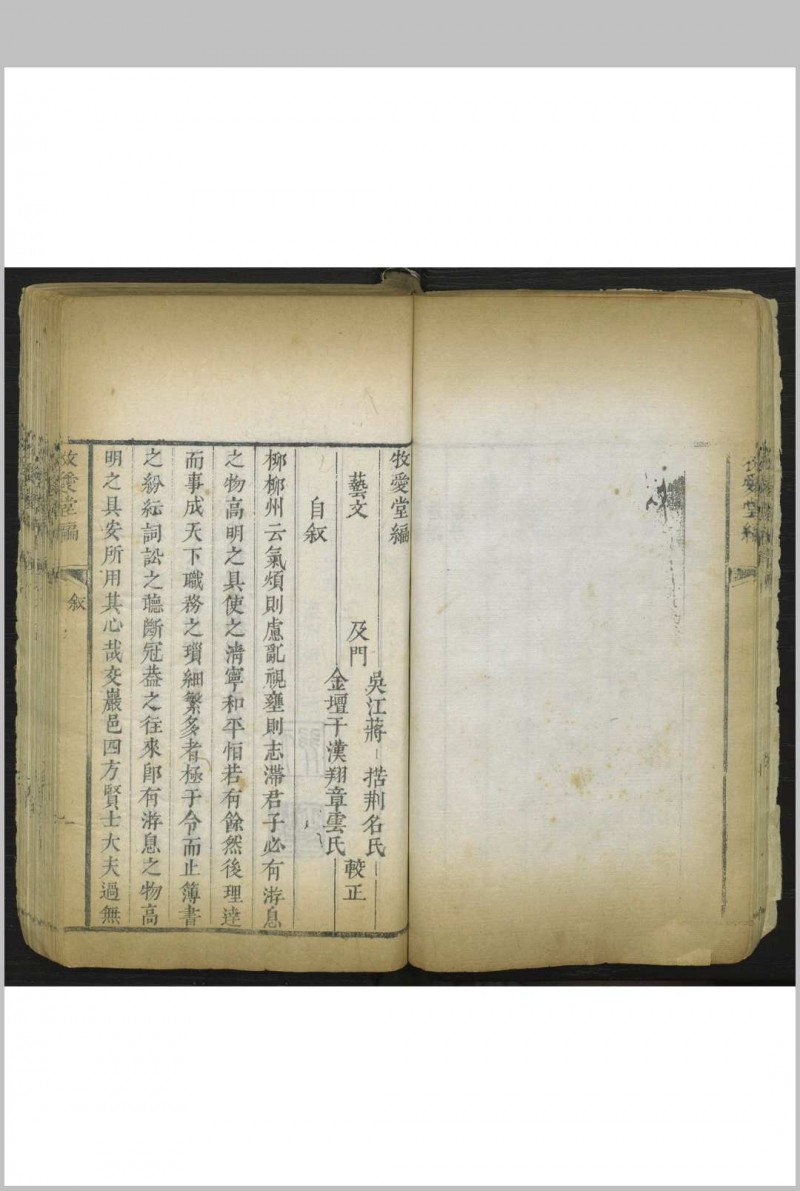 牧愛堂編
藝文
及門
吳江蔣 括荆名氏
金壇于漢翔章雲氏
較正
自叙
柳柳州云氣煩則慮亂視壅則志滯君子必有游息
之物高明之具使之淸寧和平恒若有餘然後理達
而事成天下職務之瑣細繁多者極于令而止簿書
之紛紜詞訟之聽斷冠葢之往來卽有游息之物高
明之具安所用其心哉交巖邑四方賢士大夫過無
牧愛堂編
叙
一
愛堂編